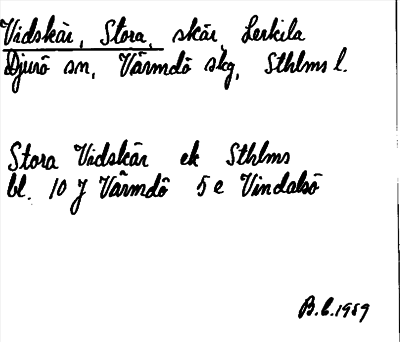 Vidskär, Stora, skär, Lerkila
Djurö sn, Värmdö skg, Sthlms l.
Stora Vidskär ek Sthlms
bl. 10 J Värmdö 5 e Vindalsö
B.C. 1959